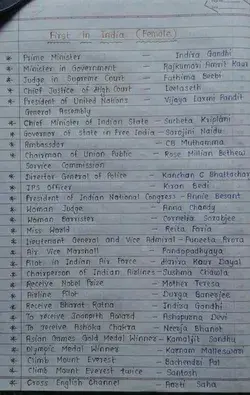 First in India (Female)
* Prime Minister - Indira Gandhi
* Minister in Government - Rajkumari Amrit Kaur
* Judge in Supreme Court - Fathima Beebi
* Chief Justice of High Court - Leelaseth
* President of United Nations - Vijaya Laxmi Pandit
General Assembly
* Chief Minister of Indian State - Surheta Kriplani
* Governor of state in Free India - Sarojini Naidu
* Ambassdor - CB Muthamma
* Chairman of Union Public - Rose Millian Bethew
Service Commission
* Director General of Police - Kanchan C Bhattachar
* IPS Officer - Kiran Bedi
* President of Indian National Congress - Annie Besant
* Woman Judge - Anna Chandy
* Woman Barrister - Cornelia Sorabjee
* Miss World - Reita Faria
* Lieutenant General and Vice Admiral - Puneeta Arora
* Air Vice Marshall - Pandoppathyaya
* Pilot in Indian Air Force - Harita Kaur Dayal
* Chairperson of Indian Airlines - Sushma Chawla
* Receive Nobel Prize - Mother Teresa
* Airline Pilot - Durga Banerjee
* Receive Bharat Ratna - Indira Gandhi
* To receive Jnanpith Award - Ashapurna Devi
* To receive Ashoka Chakra - Neerja Bhanot
* Asian Games Gold Medal Winner - Kamaljit Sandhu
* Olympic Medal Winner - Karnam Malleswari
* Climb Mount Everest - Bachendri Pal
* Climb Mount Everest twice - Santosh
* Cross English Channel - Aarti Saha